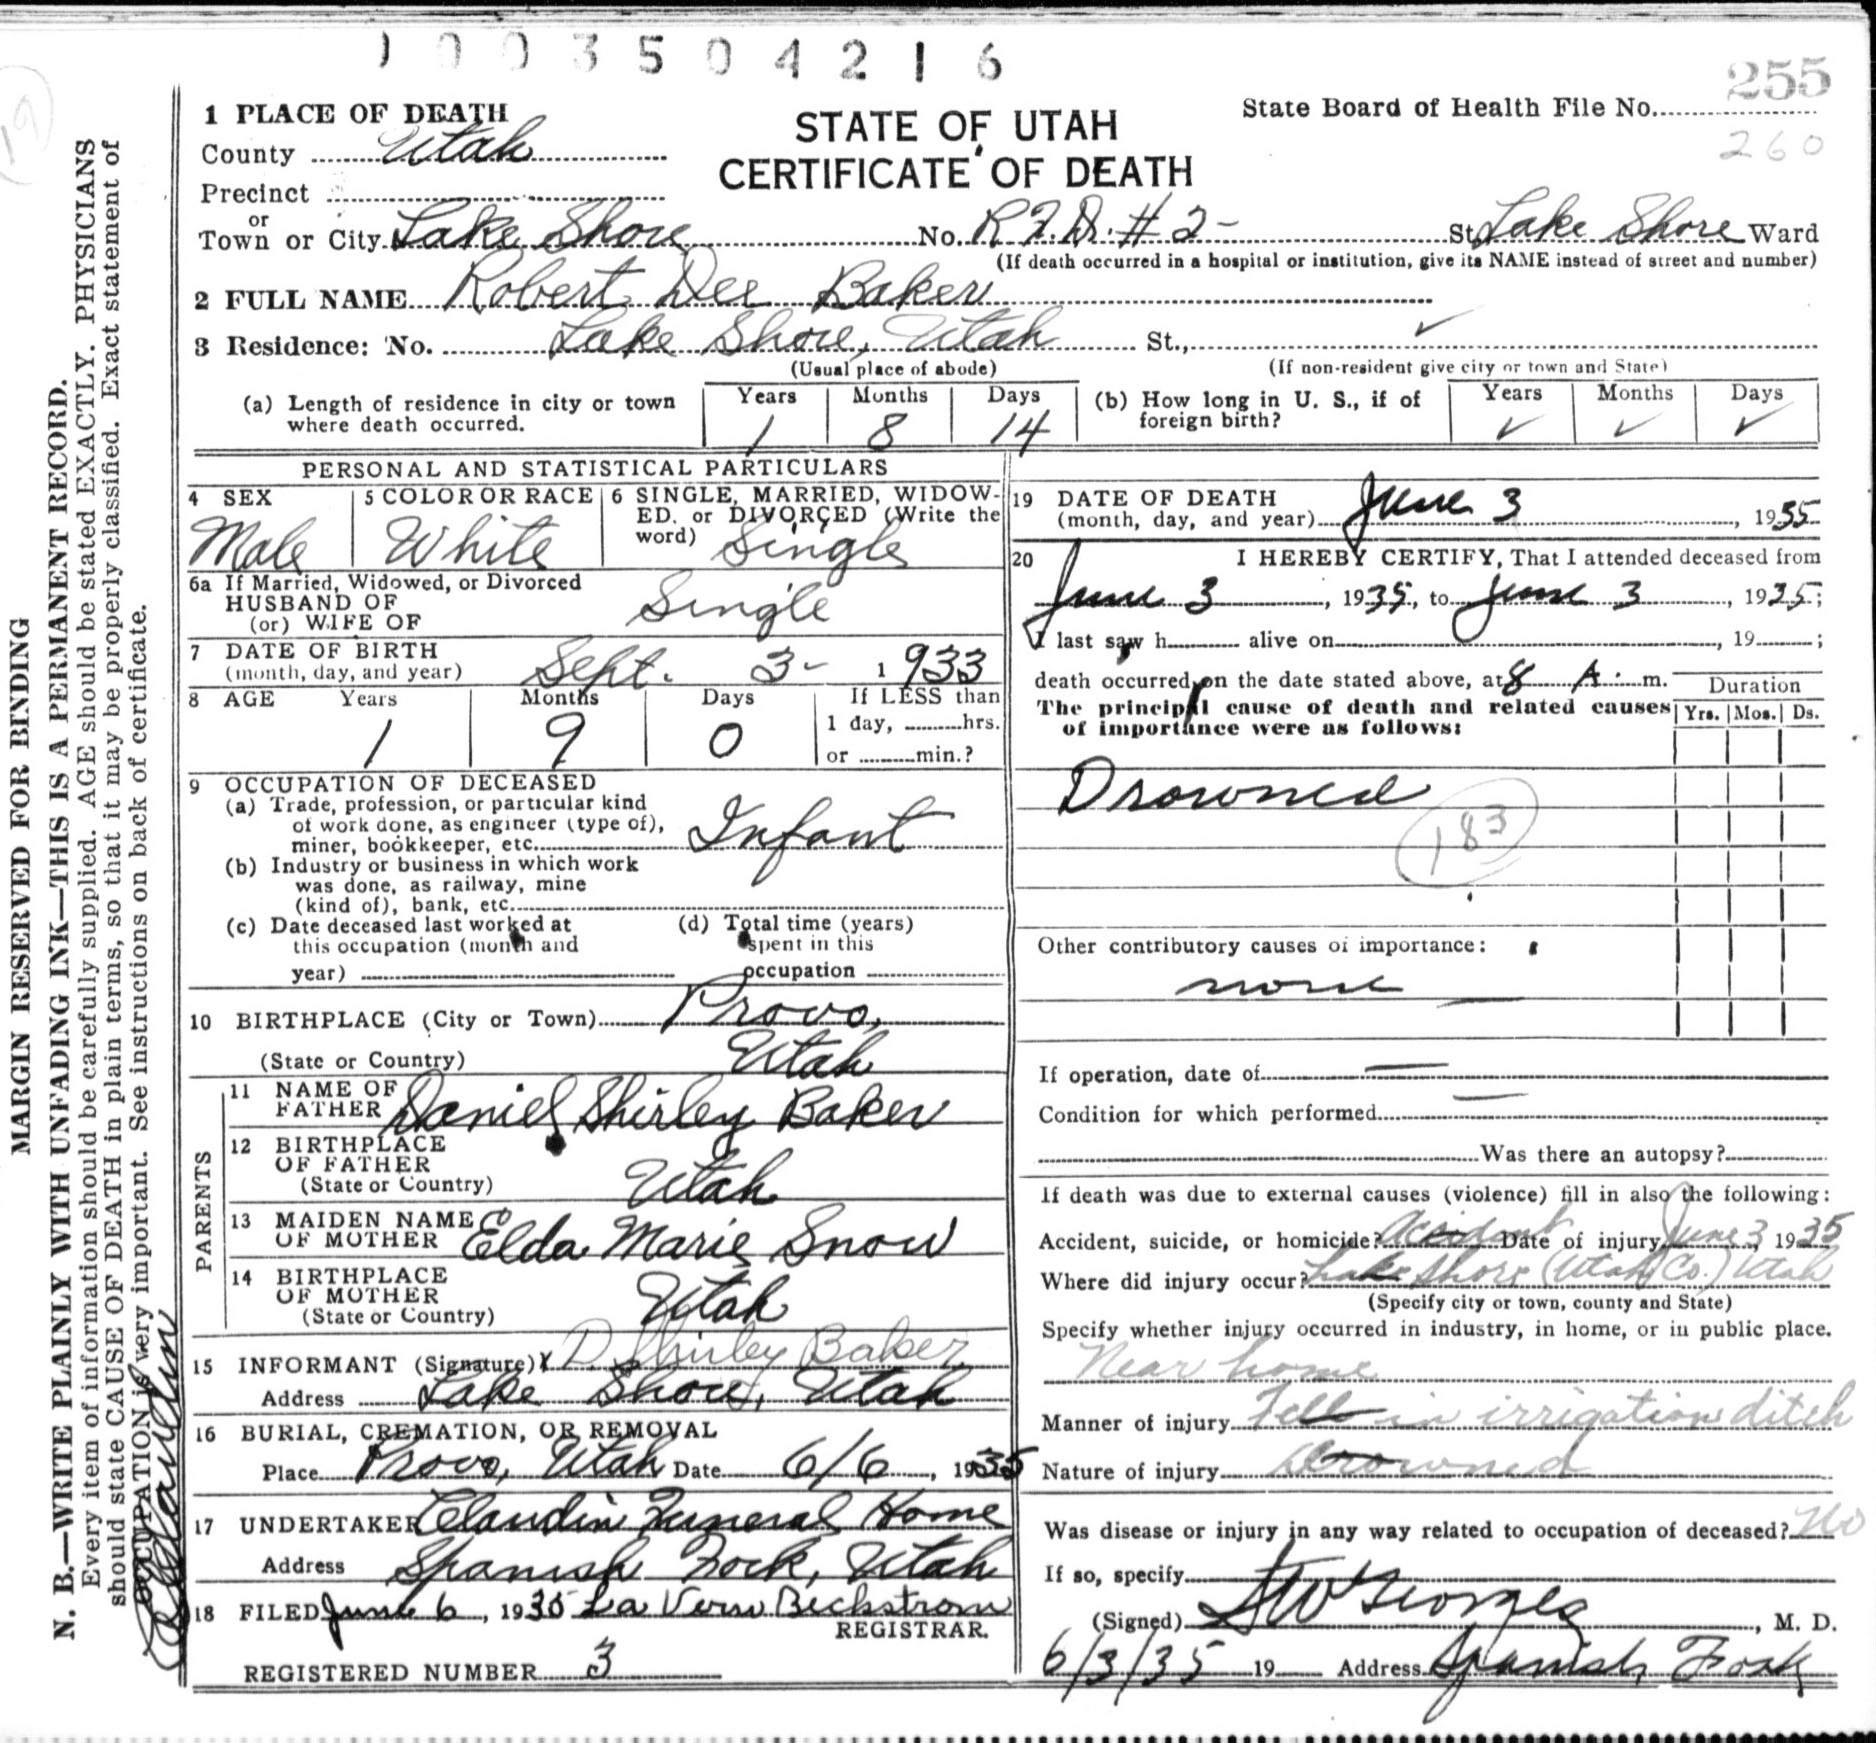 1003504216
255
260
1 PLACE OF DEATH
County Utah
Precinct
or
Town or City Lake Shore No. R.F.D. #2- St. Lake Shore Ward
(If death occurred in a hospital or institution, give its NAME instead of street and number)
STATE OF UTAH
CERTIFICATE OF DEATH
State Board of Health File No.
2 FULL NAME Robert Dee Baker
3 Residence: No. Lake Shore, Utah St.,
(Usual place of abode) (If non-resident give city or town and State)
(a) Length of residence in city or town where death occurred. Years 1 Months 8 Days 14
(b) How long in U. S., if of foreign birth? Years ✓ Months ✓ Days ✓
PERSONAL AND STATISTICAL PARTICULARS
4 SEX Male
5 COLOR OR RACE White
6 SINGLE, MARRIED, WIDOWED, or DIVORCED (Write the word) Single
6a If Married, Widowed, or Divorced
HUSBAND OF
(or) WIFE OF Single
7 DATE OF BIRTH
(month, day, and year) Sept. 3- 1933
8 AGE Years 1 Months 9 Days 0 If LESS than
1 day, hrs.
or min.?
9 OCCUPATION OF DECEASED
(a) Trade, profession, or particular kind
of work done, as engineer (type of),
miner, bookkeeper, etc. Infant
(b) Industry or business in which work
was done, as railway, mine
(kind of), bank, etc.
(c) Date deceased last worked at
this occupation (month and
year)
(d) Total time (years)
spent in this
occupation
10 BIRTHPLACE (City or Town) Provo,
(State or Country) Utah
PARENTS
11 NAME OF
FATHER Daniel Shirley Baker
12 BIRTHPLACE
OF FATHER
(State or Country) Utah
13 MAIDEN NAME
OF MOTHER Elda Marie Snow
14 BIRTHPLACE
OF MOTHER
(State or Country) Utah
15 INFORMANT (Signature) X D Shirley Baker
Address Lake Shore, Utah
16 BURIAL, CREMATION, OR REMOVAL
Place Provo, Utah Date 6/6, 1935
17 UNDERTAKER Claudin Funeral Home
Address Spanish Fork, Utah
18 FILED June 6, 1935 La Vern Beckstrom
REGISTRAR.
REGISTERED NUMBER 3
19 DATE OF DEATH
(month, day, and year) June 3, 1935
20 I HEREBY CERTIFY, That I attended deceased from
June 3, 1935, to June 3, 1935;
I last saw h alive on, 19;
death occurred on the date stated above, at 8 A. m.
The principal cause of death and related causes
of importance were as follows:
Duration
Yrs. Mos. Ds.
Drowned
183
Other contributory causes of importance:
none
If operation, date of
Condition for which performed
Was there an autopsy?
If death was due to external causes (violence) fill in also the following:
Accident, suicide, or homicide? Accident Date of injury June 3, 1935
Where did injury occur? Lake Shore (Utah Co.) Utah
(Specify city or town, county and State)
Specify whether injury occurred in industry, in home, or in public place.
Near home
Manner of injury Fell in irrigation ditch
Nature of injury drowned
Was disease or injury in any way related to occupation of deceased? No
If so, specify
(Signed) Georges, M. D.
6/3/35 19 Address Spanish Fork
MARGIN RESERVED FOR BINDING
N. B.—WRITE PLAINLY WITH UNFADING INK—THIS IS A PERMANENT RECORD.
Every item of information should be carefully supplied. AGE should be stated EXACTLY. PHYSICIANS
should state CAUSE OF DEATH in plain terms, so that it may be properly classified. Exact statement of
OCCUPATION is very important. See instructions on back of certificate.